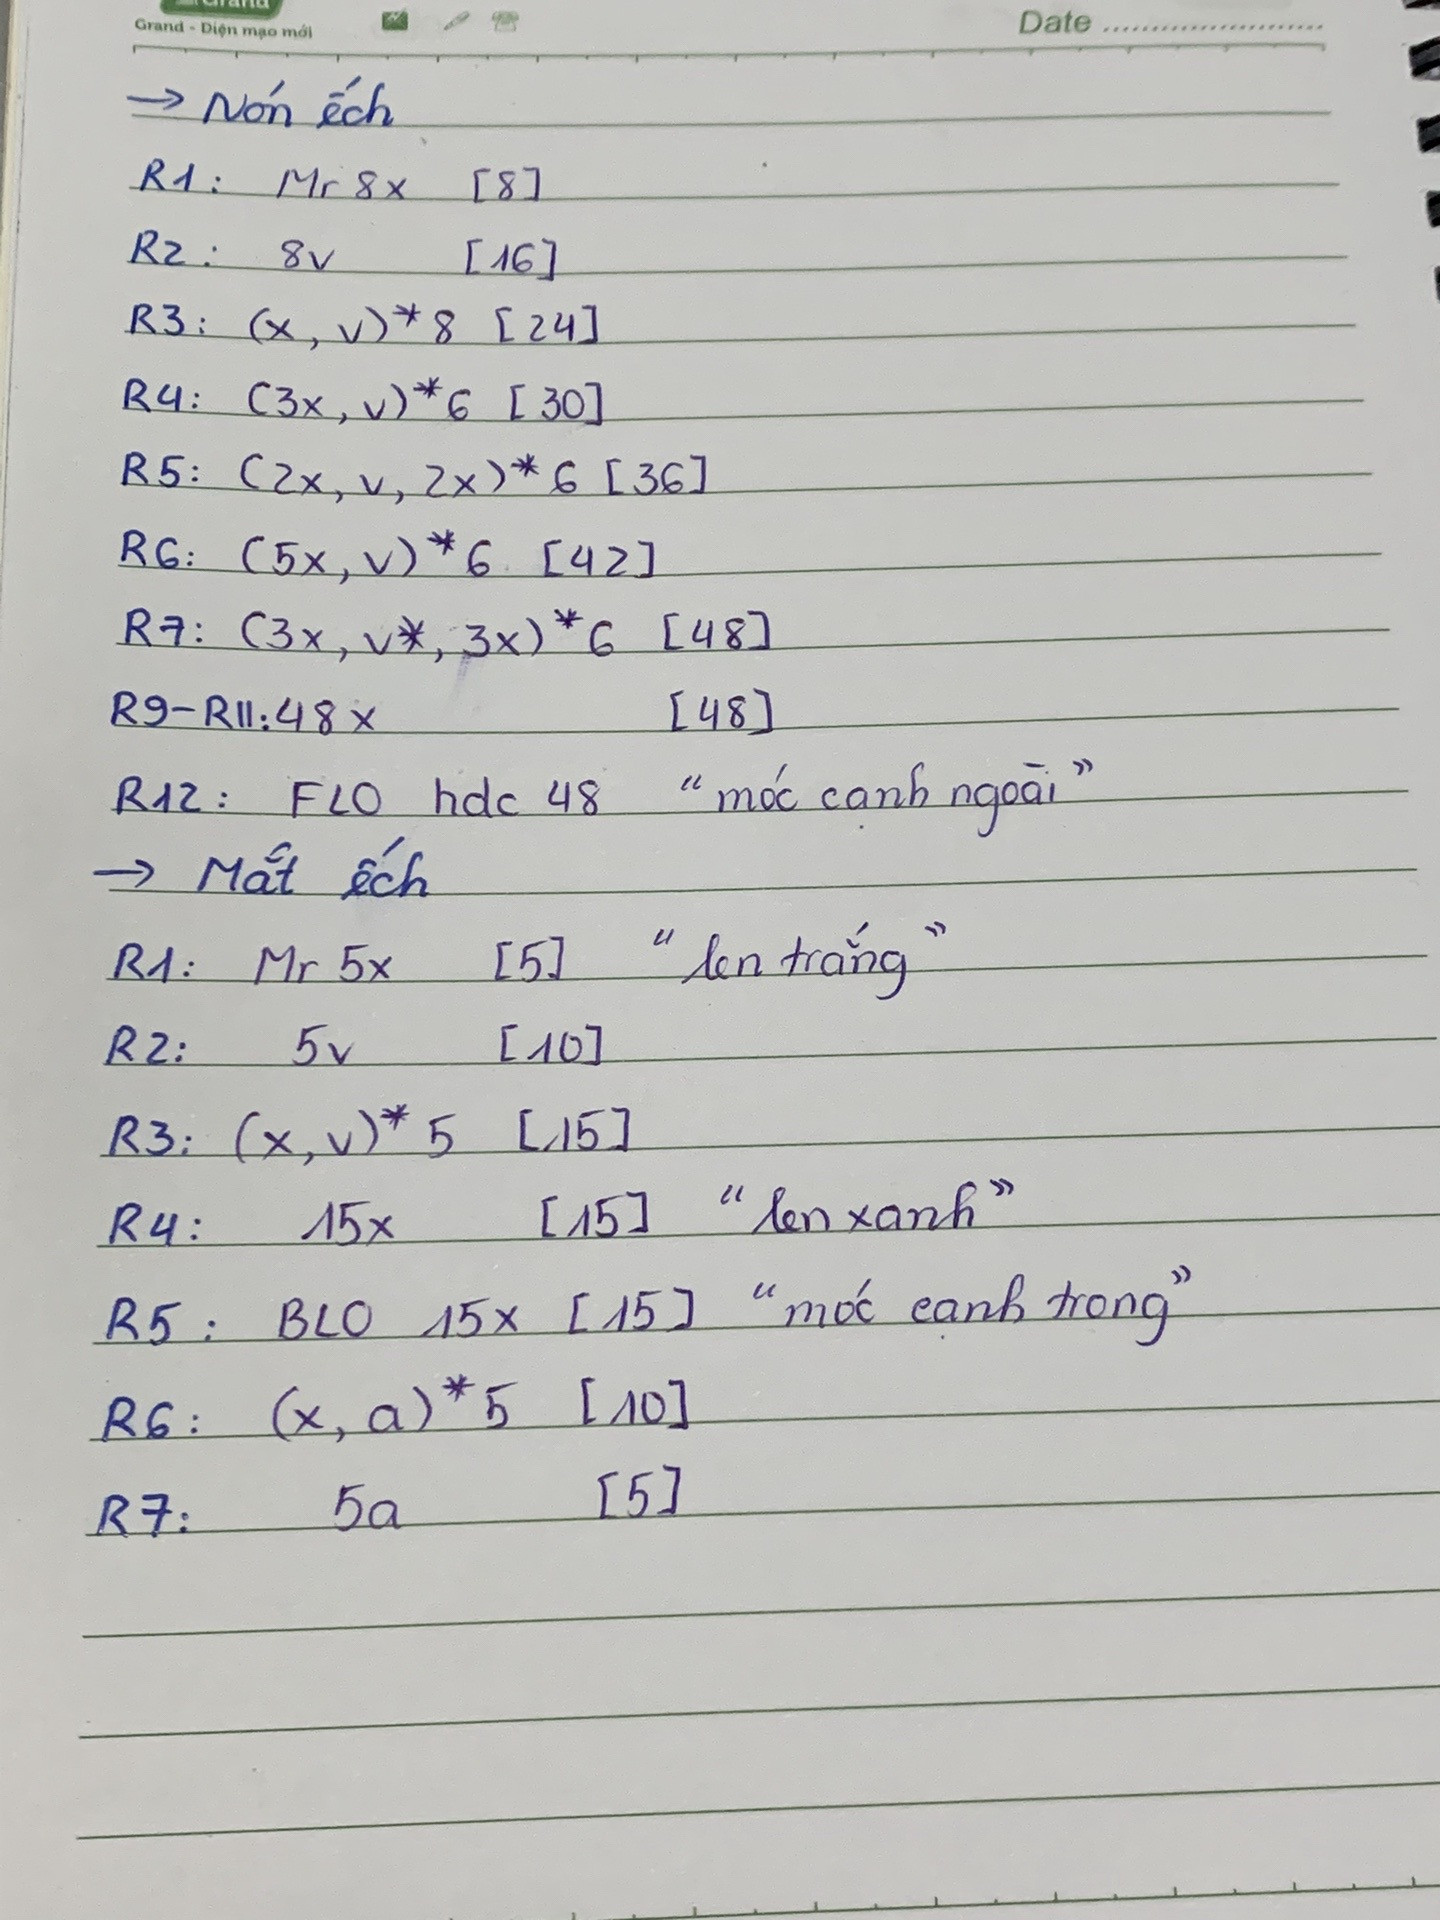 Grand
Grand - Diện mạo mới
Date
→ Nón ếch
R1: Mr 8x [8]
R2: 8v [16]
R3: (x, v)*8 [24]
R4: (3x, v)*6 [30]
R5: (2x, v, 2x)*6 [36]
R6: (5x, v)*6 [42]
R7: (3x, v*, 3x)*6 [48]
R9-R11: 48x [48]
R12: FLO hdc 48 "móc cạnh ngoài"
→ Mắt ếch
R1: Mr 5x [5] "len trắng"
R2: 5v [10]
R3: (x, v)*5 [15]
R4: 15x [15] "len xanh"
R5: BLO 15x [15] "móc cạnh trong"
R6: (x, a)*5 [10]
R7: 5a [5]